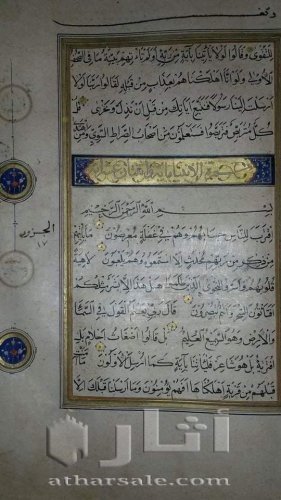 وقف
للتقوى وقالوا لولا يأتينا بآية من ربه أولم تأتهم بينة ما في الصحف
الأولى ولو أنا أهلكناهم بعذاب من قبله لقالوا ربنا لولا
أرسلت إلينا رسولا فنتبع آياتك من قبل أن نذل ونخزى قل
كل متربص فتربصوا فستعلمون من أصحاب الصراط السوي ومن اهتدى
سورة الأنبياء
بسم الله الرحمن الرحيم
اقترب للناس حسابهم وهم في غفلة معرضون ما يأتيهم
من ذكر من ربهم محدث إلا استمعوه وهم يلعبون لاهية
قلوبهم وأسروا النجوى الذين ظلموا هل هذا إلا بشر مثلكم
أفتأتون السحر وأنتم تبصرون قال ربي يعلم القول في السماء
والأرض وهو السميع العليم بل قالوا أضغاث أحلام بل
افتراه بل هو شاعر فليأتنا بآية كما أرسل الأولون ما آمنت
قبلهم من قرية أهلكناها أفهم يؤمنون وما أرسلنا قبلك إلا
الجزء
١٧
أثار
atharsale.com